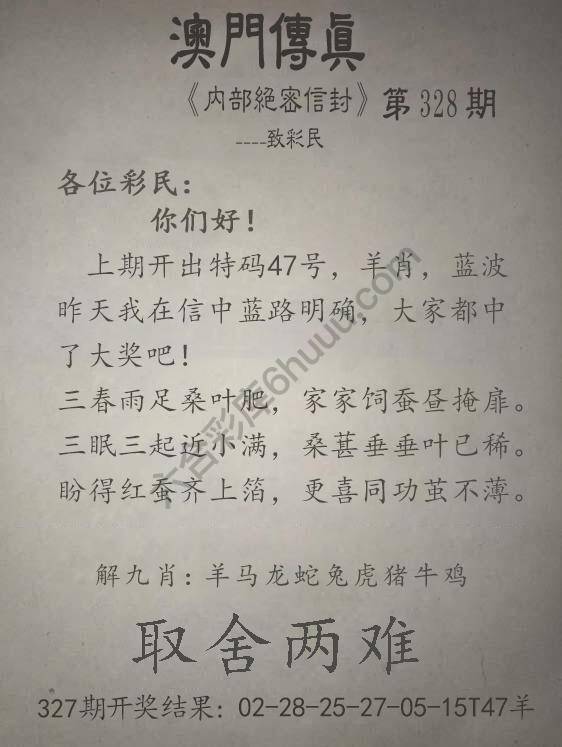 澳門傳真
《内部絕密信封》第328期
----致彩民
各位彩民：
你们好！
上期开出特码47号，羊肖，蓝波
昨天我在信中蓝路明确，大家都中
了大奖吧！
三春雨足桑叶肥，家家饲蚕昼掩扉。
三眠三起近小满，桑甚垂垂叶已稀。
盼得红蚕齐上箔，更喜同功茧不薄。
六合彩库6huuu.com
解九肖：羊马龙蛇兔虎猪牛鸡
取舍两难
327期开奖结果：02-28-25-27-05-15T47羊